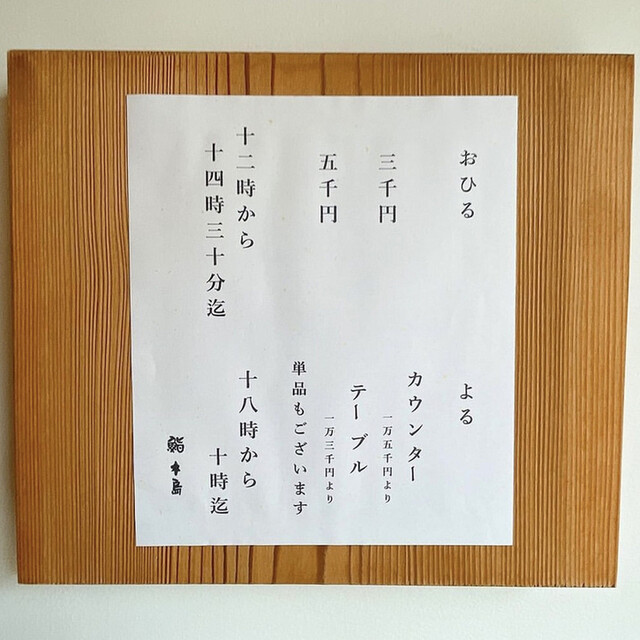 おひる
三千円
五千円
十二時から
十四時三十分迄
よる
カウンター
一万五千円より
テーブル
一万三千円より
単品もございます
十八時から
十時迄
鮨 本島